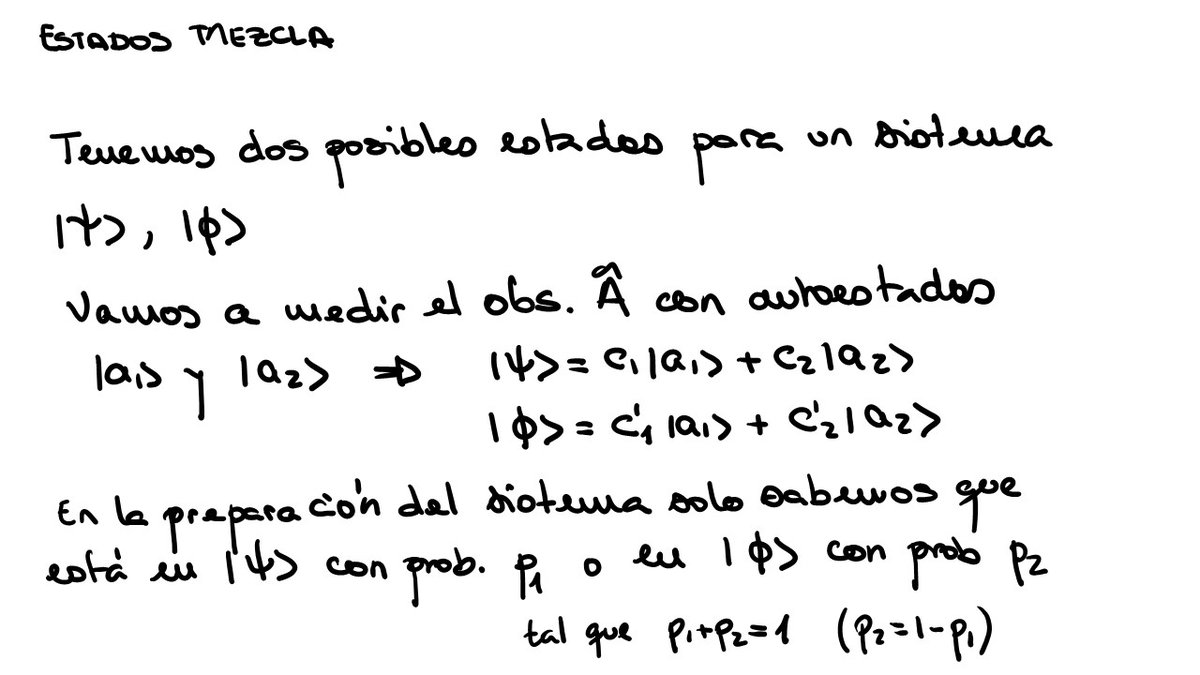 ESTADOS MEZCLA
Tenemos dos posibles estados para un sistema
|ψ>, |ϕ>
Vamos a medir el obs. Â con autoestados
|a₁> y |a₂> ⇒ |ψ> = c₁|a₁> + c₂|a₂>
|ϕ> = c'₁|a₁> + c'₂|a₂>
En la preparación del sistema solo sabemos que
está en |ψ> con prob. p₁ o en |ϕ> con prob p₂
tal que p₁+p₂=1 (p₂=1-p₁)